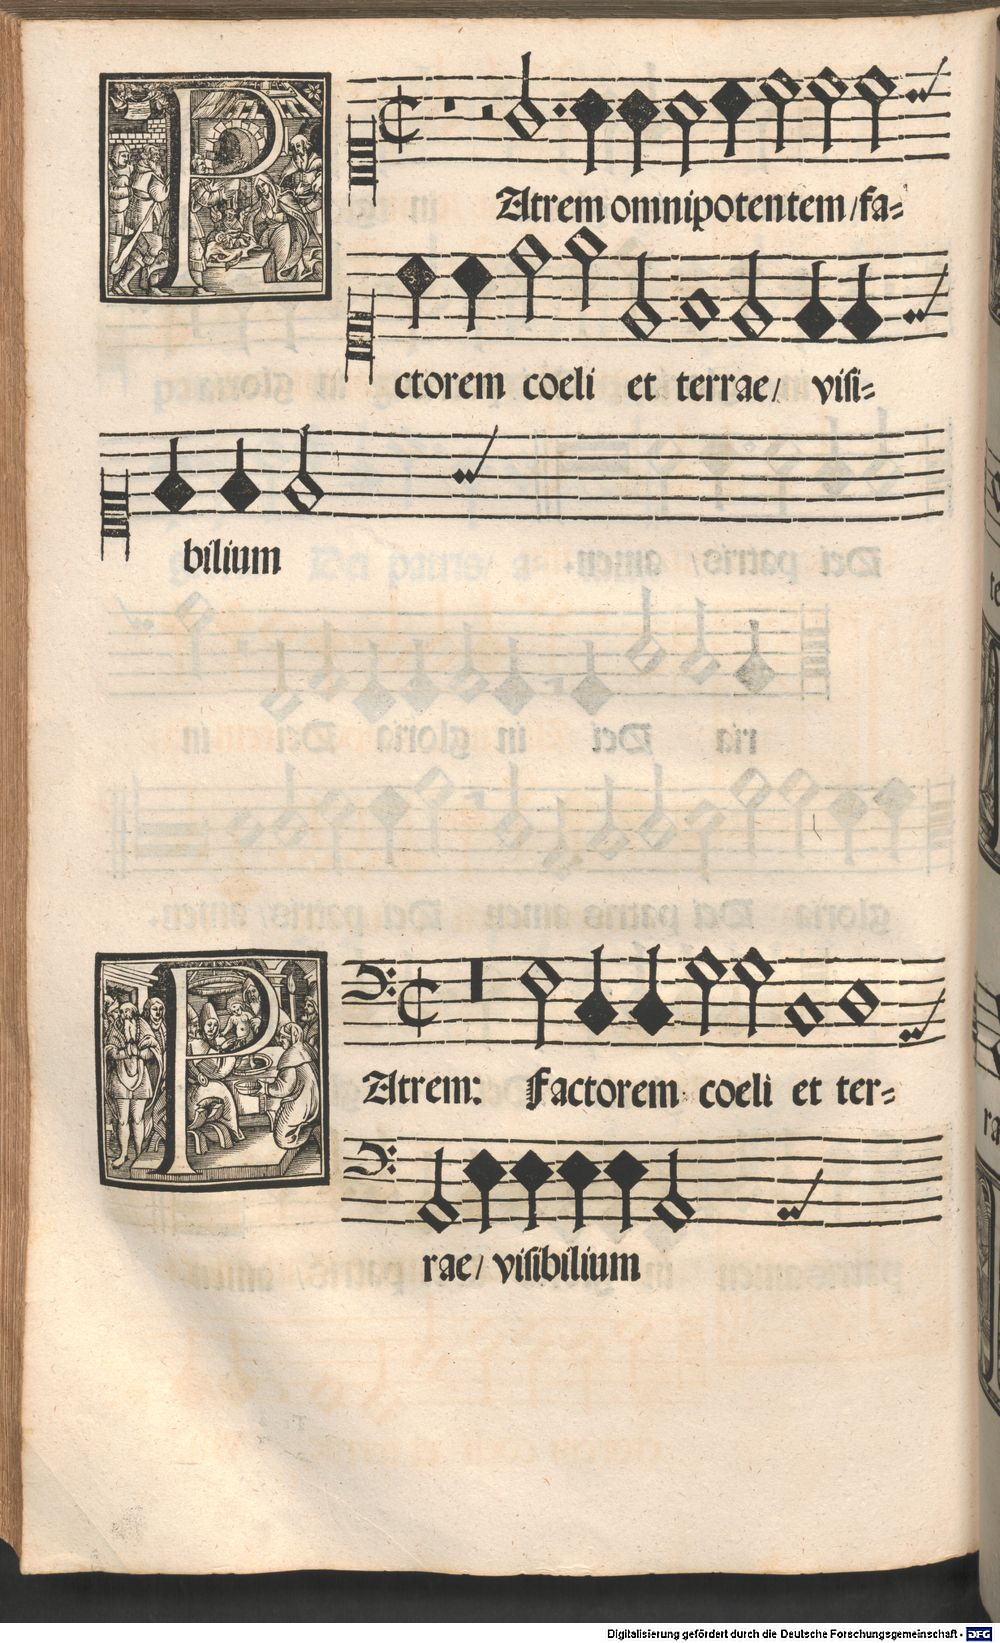 PAtrem omnipotentem/fa-
ctorem coeli et terrae/ visi-
bilium
PAtrem: Factorem coeli et ter-
rae/ visibilium
Digitalisierung gefördert durch die Deutsche Forschungsgemeinschaft - DFG